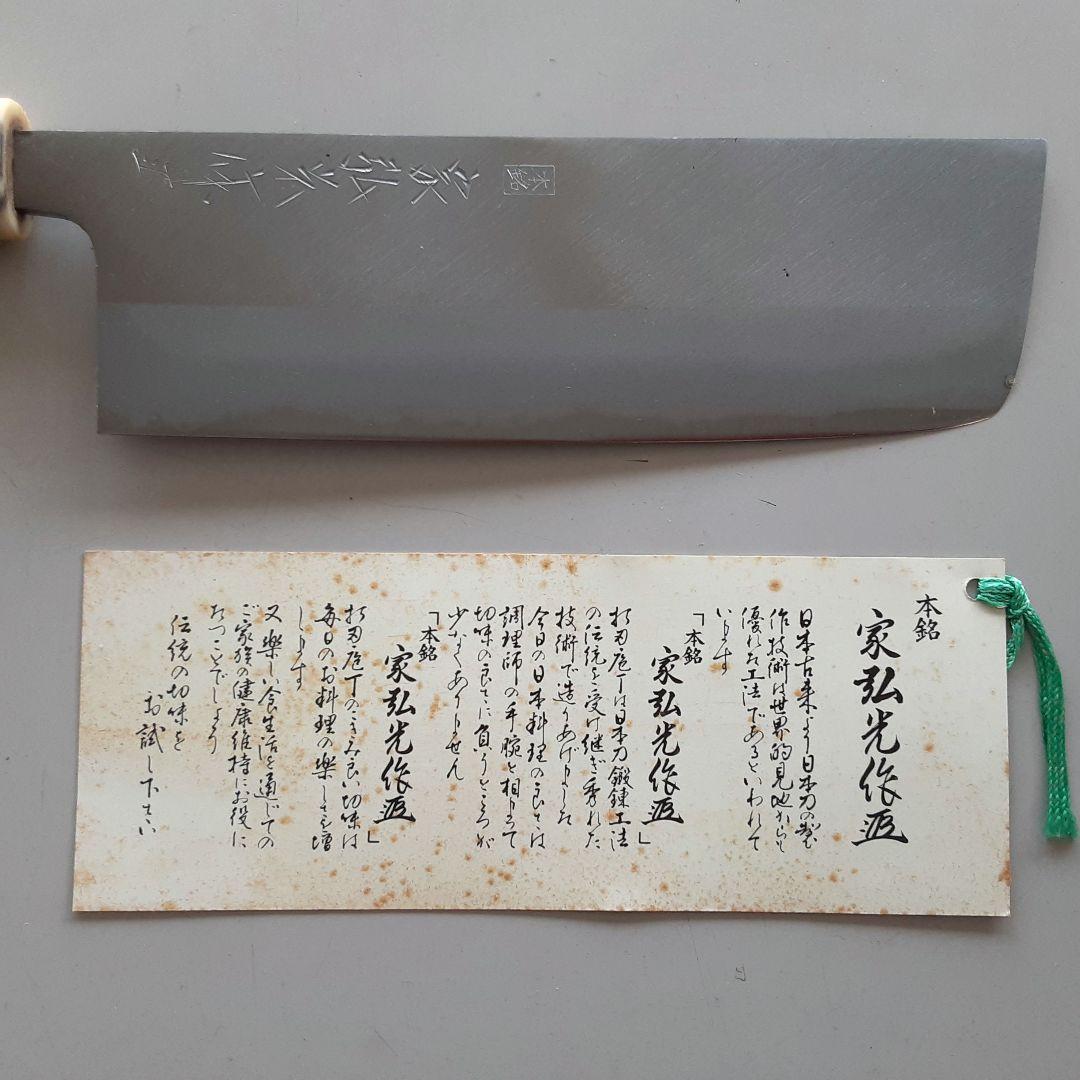 本銘
家弘光作
本銘
家弘光作
日本古来より日本刀の製
作技術は世界的見地からして
優れた工法であるといわれて
います
「本銘
家弘光作」
打刃庖丁は日本刀鍛錬工法
の伝統を受け継ぎ秀れた
技術で造りあげました
今日の日本料理の良さは
調理師の手腕と相まって
切味の良さに負うところが
少なくありません
「本銘
家弘光作」
打刃庖丁のきみ良い切味は
毎日のお料理の楽しさを増
します
又楽しい食生活を通じての
ご家族の健康維持にお役に
たつことでしょう
伝統の切味を
お試し下さい